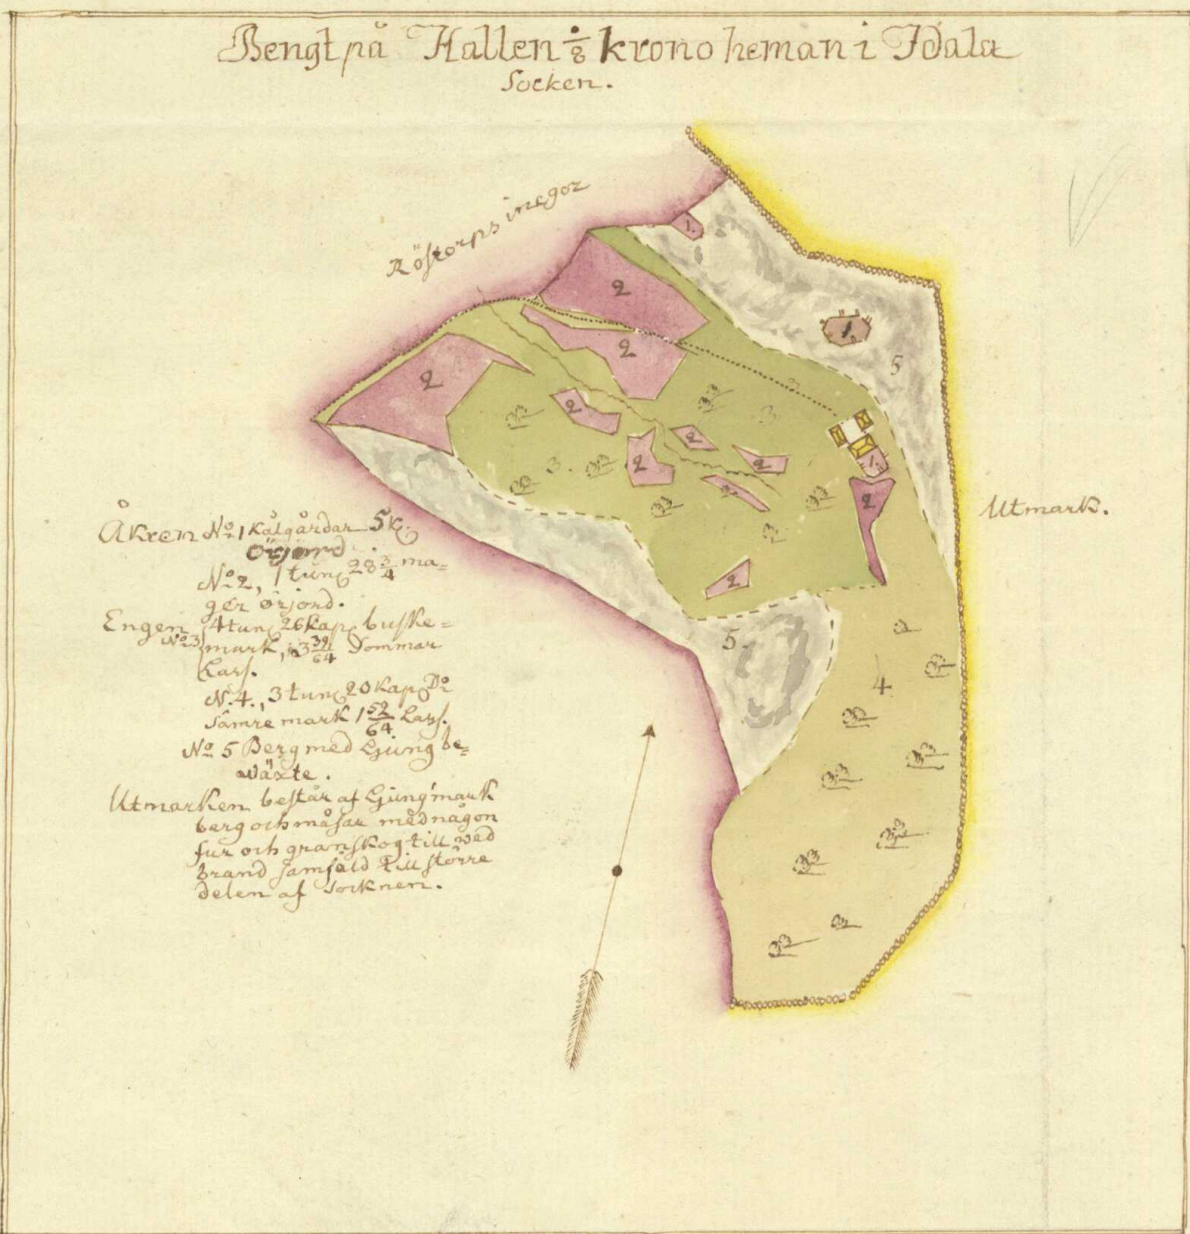 Bengt på Hallen ⅛ krono heman i Idala
Socken.
Röstorps inegor
Utmark.
Åkren No 1 Kålgårdar 5 k.
örjord.
No 2, 1 tun 28 3/4 ma=
ger örjord.
Engen 4 tun 26 kap buske=
No 3 mark, 3 39/64 Sommar
Lass.
N. 4., 3 tun 20 kap Do
sämre mark 1 52/64 Lass.
No 5 Berg med Ljung be=
växte.
Utmarken består af Ljung mark
berg och måsar med någon
fur och granskog till ved
brand samfäld till större
delen af Socknen.
1.
2
2
1
5
2
3
2
3
2
2
2
1.
3
2
3
2
5.
4